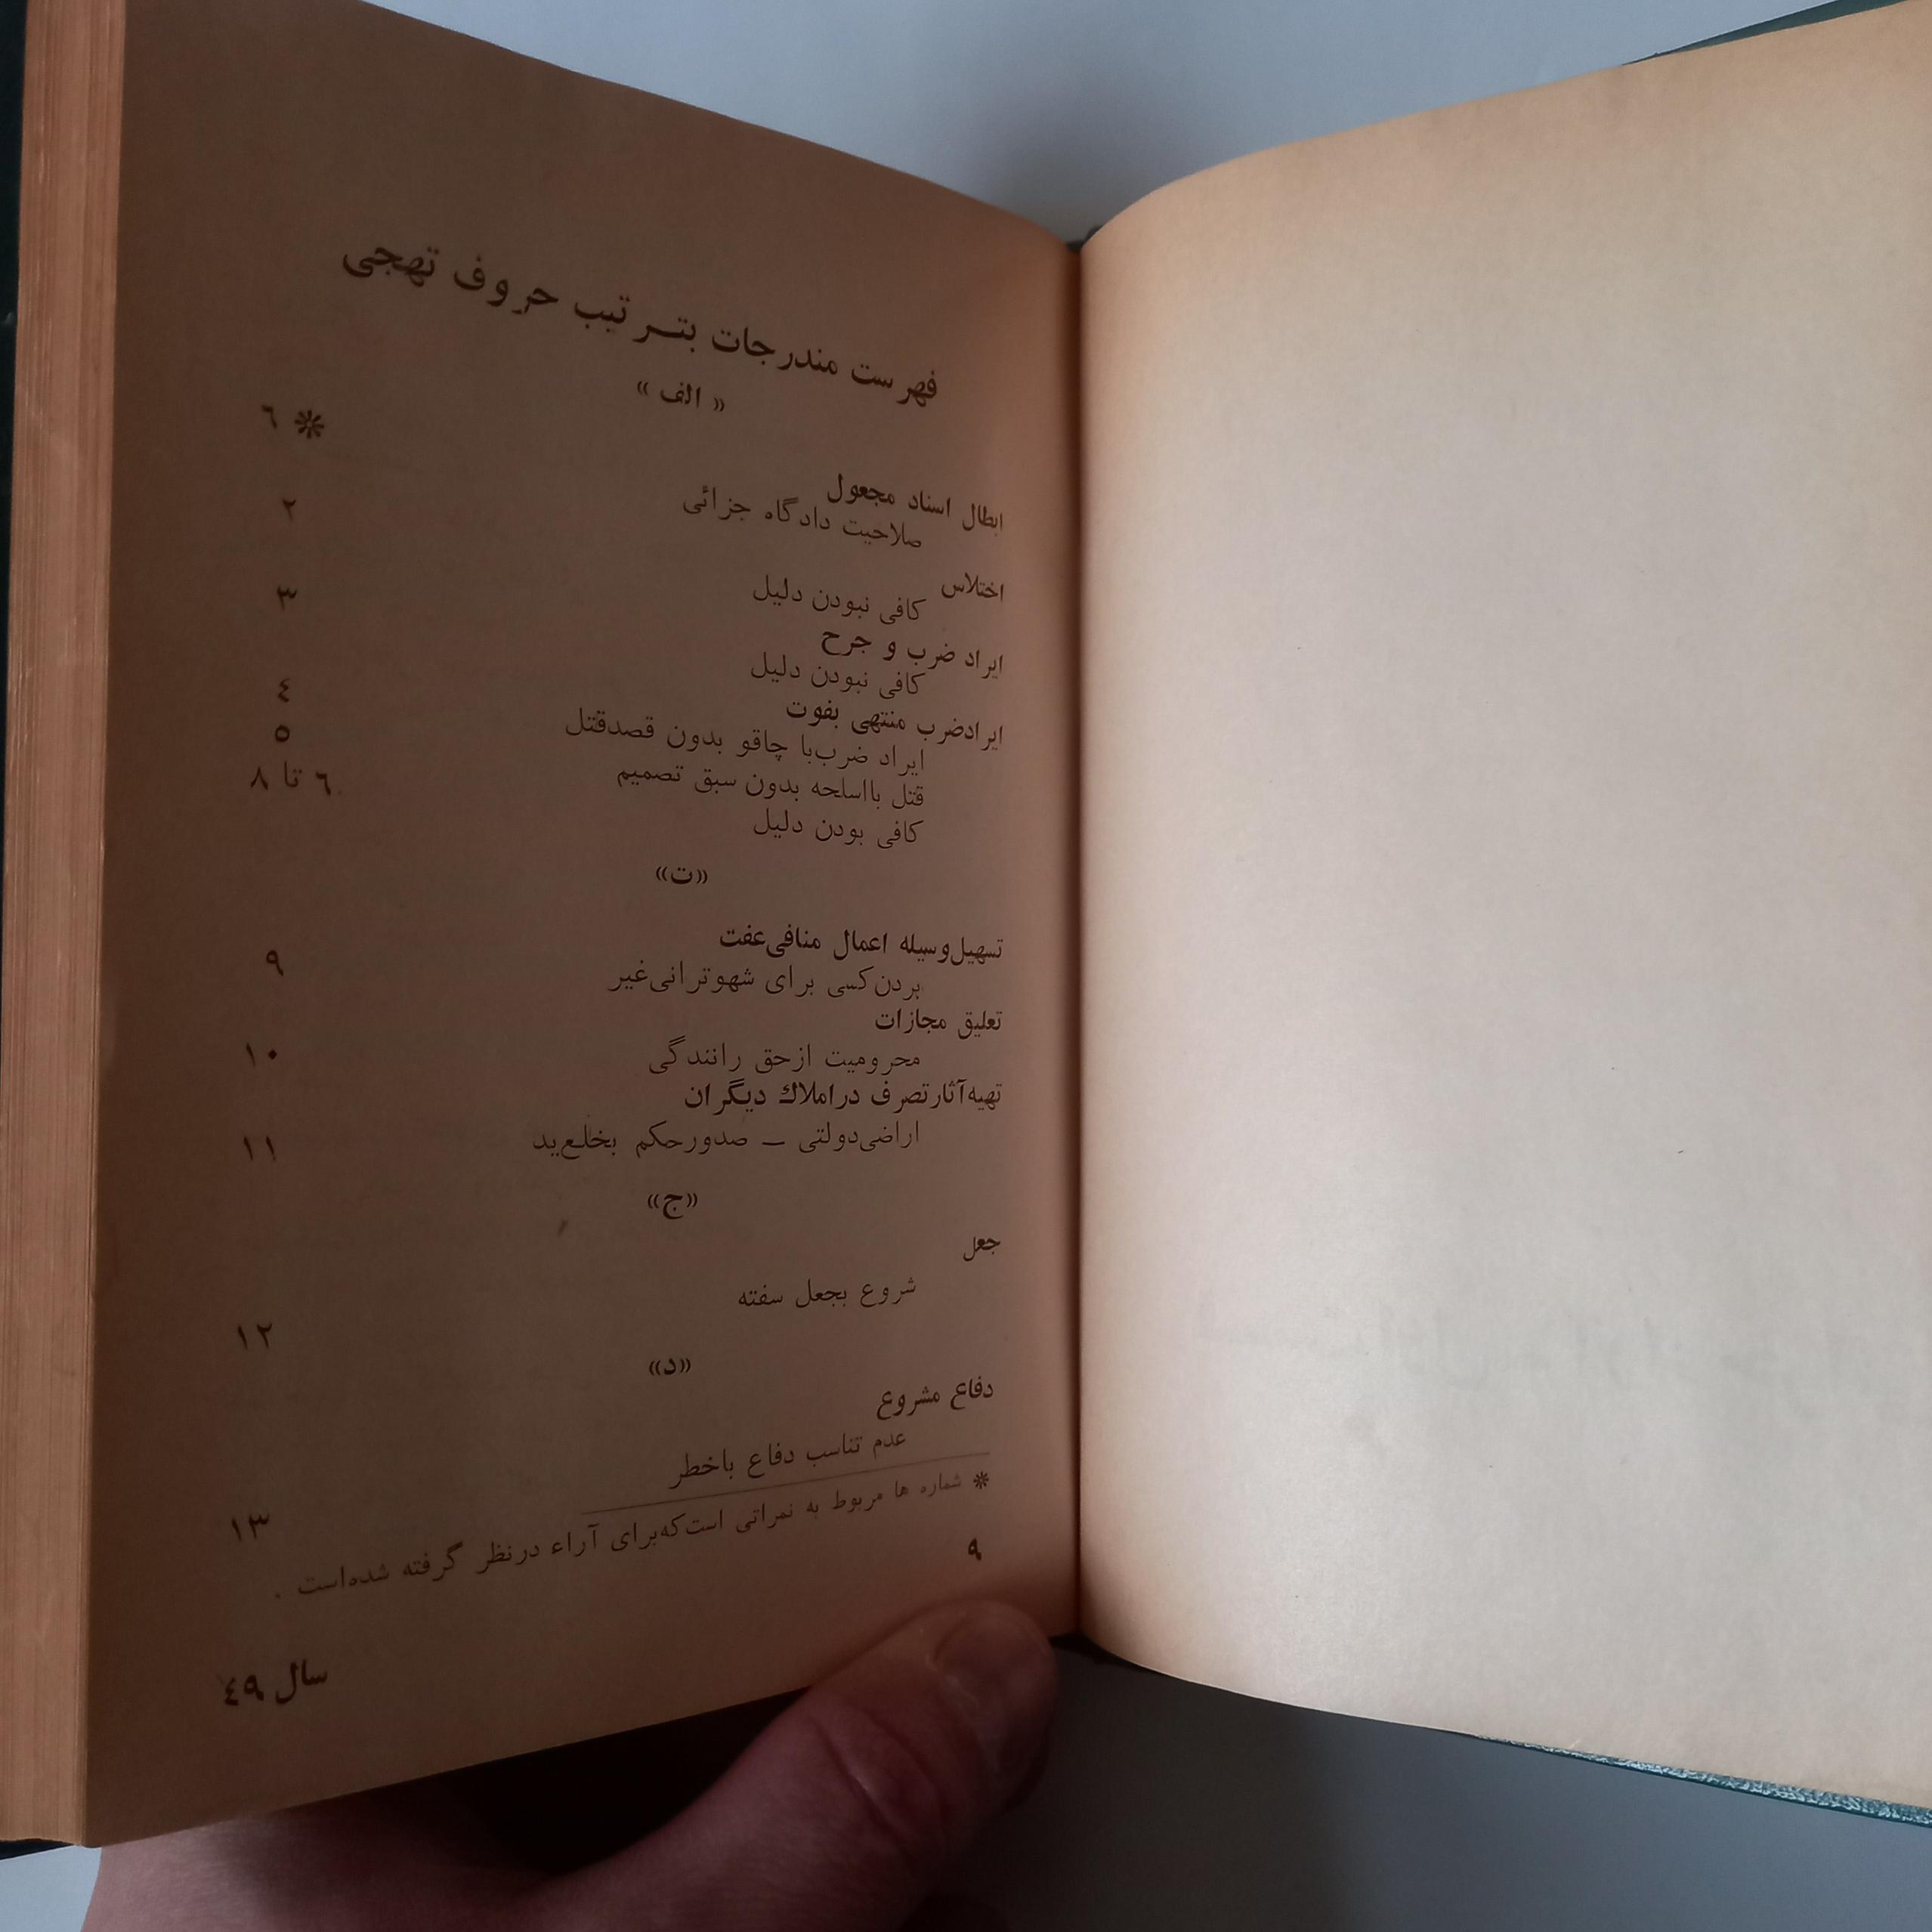 فهرست مندرجات بترتیب حروف تهجی
« الف »
ابطال اسناد مجعول
صلاحیت دادگاه جزائی * ٦
اختلاس
کافی نبودن دلیل ٢
ایراد ضرب و جرح
کافی نبودن دلیل ٣
ایرادضرب منتهی بفوت
ایراد ضرب‌با چاقو بدون قصدقتل ٤
قتل بااسلحه بدون سبق تصمیم ٥
کافی بودن دلیل ٦ تا ٨
«ت»
تسهیل‌وسیله اعمال منافی‌عفت
بردن‌کسی برای شهوترانی‌غیر ٩
تعلیق مجازات
محرومیت ازحق رانندگی ١٠
تهیه‌آثارتصرف دراملاك دیگران
اراضی‌دولتی ــ صدورحکم بخلع‌ید ١١
«ج»
جعل
شروع بجعل سفته ١٢
«د»
دفاع مشروع
عدم تناسب دفاع باخطر ١٣
* شماره ها مربوط به نمراتی است‌که‌برای آراء درنظر گرفته شده‌است .
٩
سال ٤٩